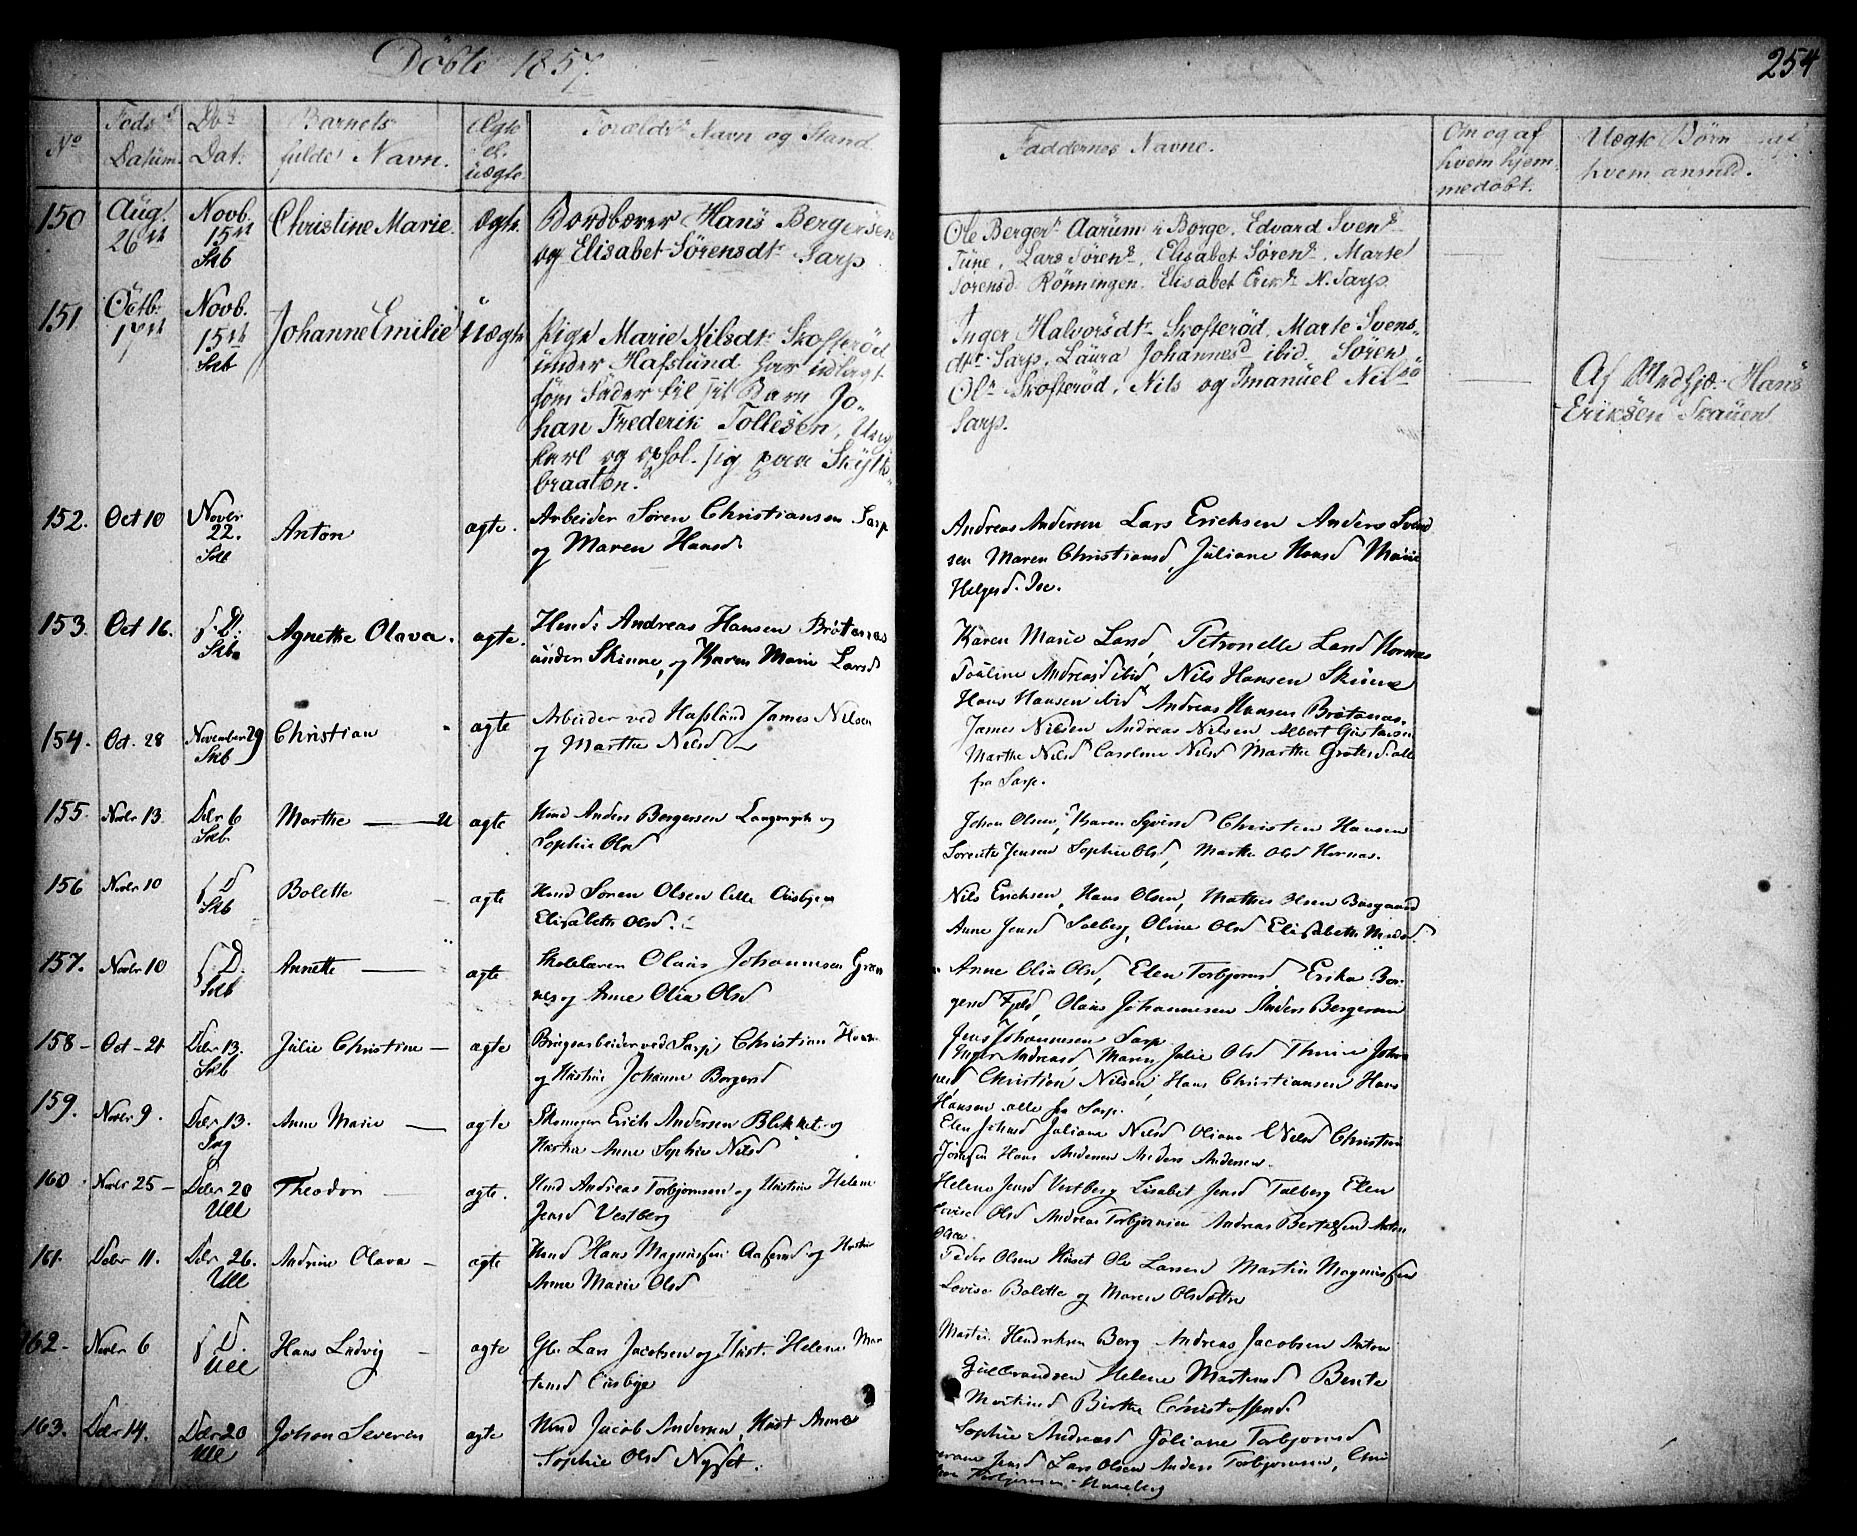 Döbte 1857.
254
No
Föds.
Datum.
Db.
Dat.
Barnets
fulde Navn.
Ægte
el.
uægte.
Forældr. Navn og Stand
Faddernes Navne.
Om og af
hvem hjem-
medøbt.
Uægte Børn af
hvem anmeld.
150 Aug. 26 Novb. 15 Skb Christine Marie. ægte.
Bordbærer Hans Bergersen
og Elisabet Sörensdt. Sarp
Ole Berger Aarum i Borge, Edvard Sven
Tune, Lars Sören, Elisabet Sören, Marte
Sörensd. Rönningen, Elisabet Erik N. Sarp.
151 Octb. 17 Novb. 15 Skb Johanne Emilie uægte
Pige Marie Nilsdt. Skofteröd
under Hafslund har udlagt
som Fader til sit Barn Jo-
han Frederik Tollesen, Ung-
karl og ophol. sig paa
braaten.
Inger Halvorsdt. Skofteröd, Marte Svens-
dt. Sarp, Laura Johannesd ibid. Sören
Ol Skofteröd, Nils og Imanuel Nils
Sarp.
Af Medhjæ. Hans
Eriksen Skauen
152. Oct 10 Novbr 22. Skb Anton ægte.
Arbeider Soren Christiansen Sarp
og Maren Hansd.
Andreas Andersen Lars Ericksen Anders Svend
sen Maren Christiansd, Juliane Hansd Marie
Helgesd. Ise.
153. Oct 16. s. D. Skb Agnethe Olava. ægte.
Husd: Andreas Hansen Bråtenes
under Skinne, og Karen Marie Larsd
Karen Marie Land, Petronelle Land Hornæs
Pauline Andreasd ibid, Nils Hansen Skinne
Hans Hansen ibid Andreas Hansen Bråtenæs.
154. Oct. 28 November 29 Skb Christian ægte
Arbeider ved Hafslund James Nilsen
og Marthe Nilsd
James Nilsen Andreas Nilsen Albert Gustavsen
Marthe Nilsd Caroline Nilsd Marthe alle
fra Sarp.
155. Novbr 13. Debr 6 Skb Marthe ægte
Husd Anders Borgersen og
Sophie Olsd
Johan Olsen, Karen Christen Hansen
Jensen Sophie Olsd, Marthe Olsd Hornæs.
156 Novbr 10 s. D Skb Bolette ægte
Husd Soren Olsen lille
Elisabeth Olsd.
Nils Ericksen, Hans Olsen, Mathis Olsen Borgaard
Anne Jensd Solberg, Oline Olsd Elisabeth
157. Novbr 10 s. D. Skb Annette ægte
Skolelærer Olaus Johannesen Gran
næs og Anne Olia Olsd
Anne Olia Olsd, Elen Torbjornsd, Erika Bor-
gersd Fjeld, Olaus Johannesen Anders Borgersen
Jens Johannesen Sarp
158 Oct 21 Debr 13. Skb Julie Christine ægte
Brugsarbeider ved Sarp Christian
og Hustrue Johanne Borgersd
Inger Andreasd, Maren Julie Olsd Johan
nesd Christian Nilsen, Hans Christiansen Hans
Hansen alle fra Sarp.
159. Novbr 9. Debr 13. Ing Anne Marie ægte
Skomager Erich Andersen Blekket og
Hustrue Anne Sophie Nilsd
Elen Juliane Nilsd Oliana Nilsd Christian
Josefsen Hans Andersen Anders Andersen.
160 Novbr 25 Debr 20 Ull Theodor ægte.
Husd Andreas Torbjornsen og Hustrue Helene
Jensd Vestberg
Helene Jensd Vestberg Lisabet Jensd Talberg Elen
Lovise Olsd Andreas Torbjornsen Andreas Bertelsen Anton
161. Debr 11. Debr 26. Ull Andrine Olava ægte
Husd Hans Magnussen og Hustrue
Anne Marie Olsd
Peder Olsen Huset Ole Larsen Martin Magnussen
Lovise Bolette og Maren Olsdøttre
162. Novbr 6 s. D. Ull Hans Ludvig ægte
Gb. Lars Jacobsen og Hust. Helene Mar
tensd
Martin Hendriksen Berg Andreas Jacobsen Anton
Gulbrandsen Helene Martensd Bente
Martinsd Birthe Christoffersd.
163. Debr 14. Debr 20 Ull Johan Severin ægte
Husd Jacob Andersen, Hust Anne
Sophie Olsd
Sophie Andreasd Juliane Torbjornsd
Jensd Lars Olsen Anders Torbjornsen,